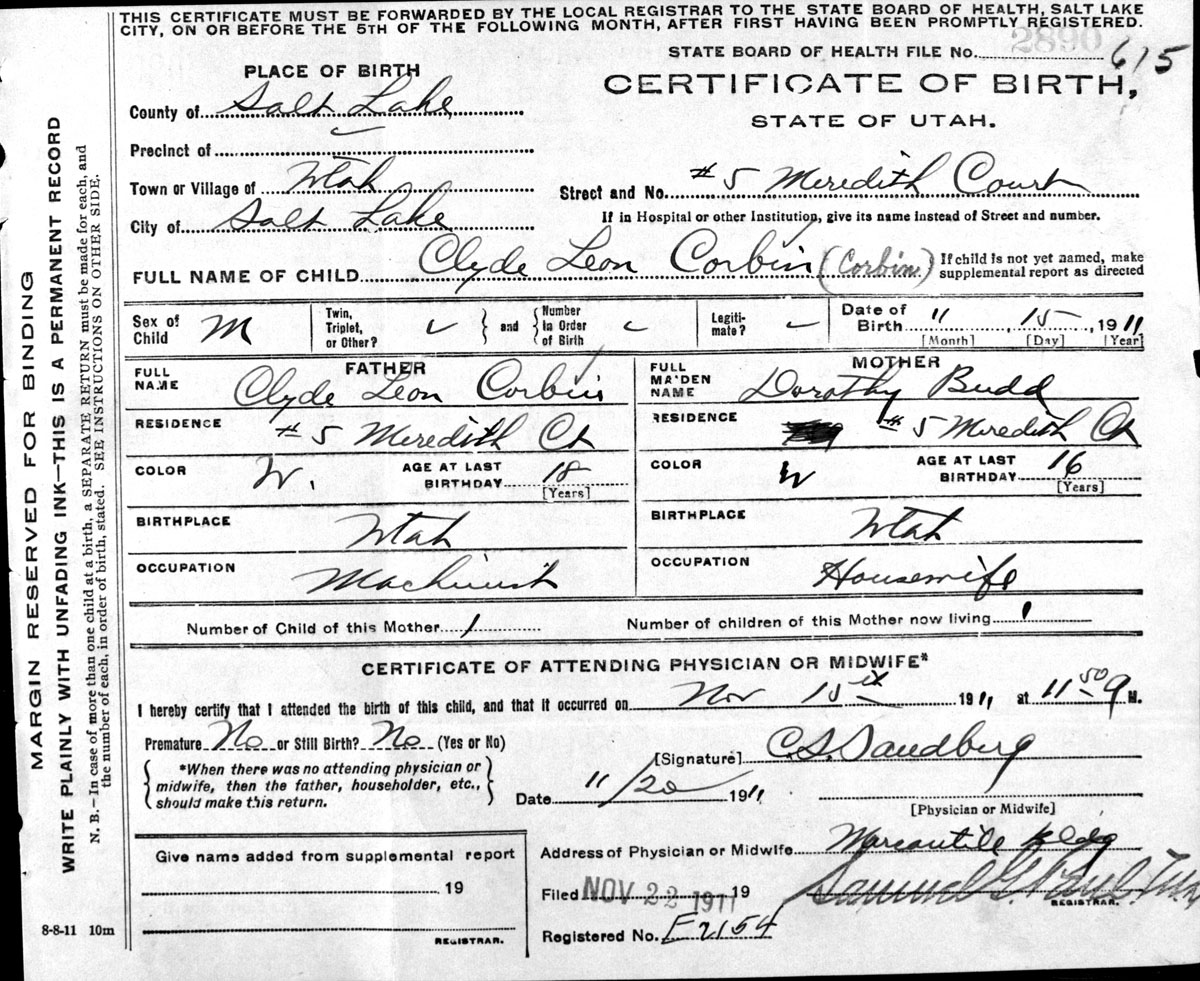 THIS CERTIFICATE MUST BE FORWARDED BY THE LOCAL REGISTRAR TO THE STATE BOARD OF HEALTH, SALT LAKE
CITY, ON OR BEFORE THE 5TH OF THE FOLLOWING MONTH, AFTER FIRST HAVING BEEN PROMPTLY REGISTERED.
2890
STATE BOARD OF HEALTH FILE No. 615
PLACE OF BIRTH
CERTIFICATE OF BIRTH,
STATE OF UTAH.
County of Salt Lake
Precinct of
Town or Village of Utah
Street and No. #5 Meredith Court
City of Salt Lake
If in Hospital or other Institution, give its name instead of Street and number.
FULL NAME OF CHILD Clyde Leon Corbin (Corbin) If child is not yet named, make
supplemental report as directed
Sex of Child M
Twin, Triplet, or Other?
and
Number in Order of Birth
Legiti-mate?
Date of Birth 11, 15, 1911
[Month] [Day] [Year]
FATHER
FULL NAME Clyde Leon Corbin
RESIDENCE #5 Meredith Ct
COLOR W. AGE AT LAST BIRTHDAY 18
[Years]
BIRTHPLACE Utah
OCCUPATION Machinist
MOTHER
FULL MAIDEN NAME Dorothy Budd
RESIDENCE #5 Meredith Ct
COLOR W AGE AT LAST BIRTHDAY 16
[Years]
BIRTHPLACE Utah
OCCUPATION Housewife
Number of Child of this Mother 1
Number of children of this Mother now living 1
CERTIFICATE OF ATTENDING PHYSICIAN OR MIDWIFE*
I hereby certify that I attended the birth of this child, and that it occurred on Nov 15th 1911 at 11 50 M.
Premature No or Still Birth? No (Yes or No)
[Signature] C.S. Sandberg
*When there was no attending physician or
midwife, then the father, householder, etc.,
should make this return.
Date 11/20 1911
[Physician or Midwife]
Give name added from supplemental report
19
REGISTRAR.
Address of Physician or Midwife Mercantile Bldg
Filed NOV 22 1911 19
Samuel G.
REGISTRAR.
Registered No. E2154
8-8-11 10m
MARGIN RESERVED FOR BINDING
WRITE PLAINLY WITH UNFADING INK—THIS IS A PERMANENT RECORD
N. B.—In case of more than one child at a birth, a SEPARATE RETURN must be made for each, and
the number of each, in order of birth, stated. SEE INSTRUCTIONS ON OTHER SIDE.